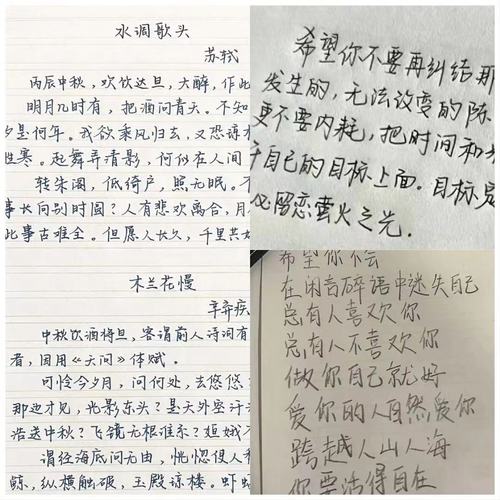 水调歌头
苏轼
丙辰中秋，欢饮达旦，大醉，作此
明月几时有，把酒问青天。不知
夕是何年。我欲乘风归去，又恐琼
胜寒。起舞弄清影，何似在人间
转朱阁，低绮户，照无眠。不
事长向别时圆？人有悲欢离合，月
此事古难全。但愿人长久，千里共
木兰花慢
辛弃疾
中秋饮酒将旦，客谓前人诗词有
者，因用《天问》体赋。
可怜今夕月，向何处，去悠悠
那边才见，光影东头？是天外空汗
浩送中秋？飞镜无根谁系？姮娥不
谓经海底问无由，恍惚使人
鲸，纵横触破，玉殿琼楼。虾
希望你不要再纠结那
发生的，无法改变的陈
更不要内耗，把时间和
于自己的目标上面。目标是
必留恋萤火之光．
希望你不会
在闲言碎语中迷失自己
总有人喜欢你
总有人不喜欢你
做你自己就好
爱你的人自然爱你
跨越人山人海
你要活得自在